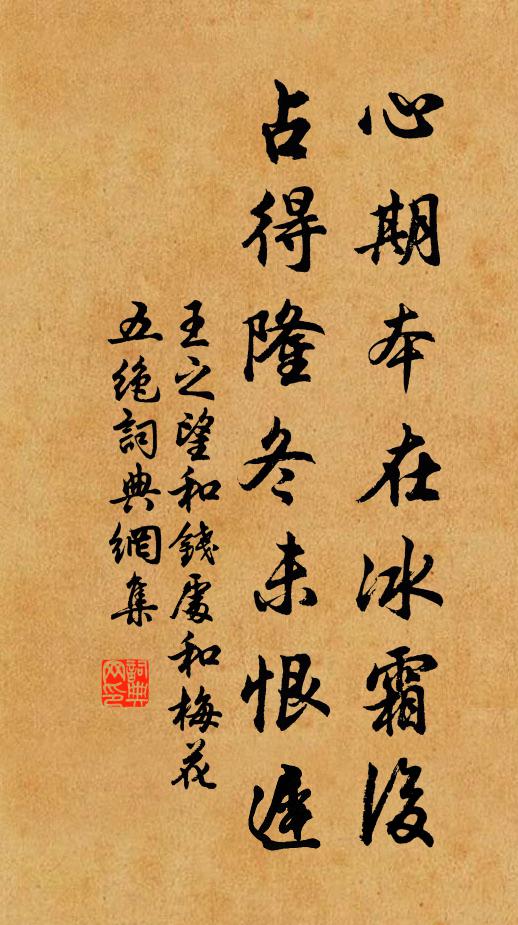 心期本在冰霜後
占得隆冬未恨遲
王之望和錢處和梅花
五絶詞典網集
詞典網印